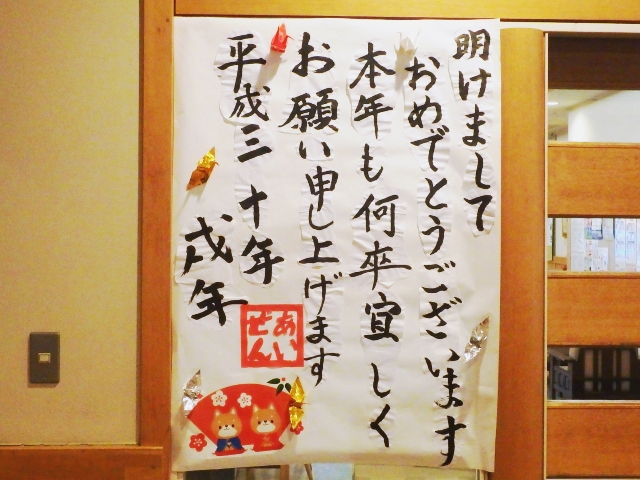 明けまして
おめでとうございます
本年も何卒宜しく
お願い申し上げます
平成三十年
戌年
あい
ぜん